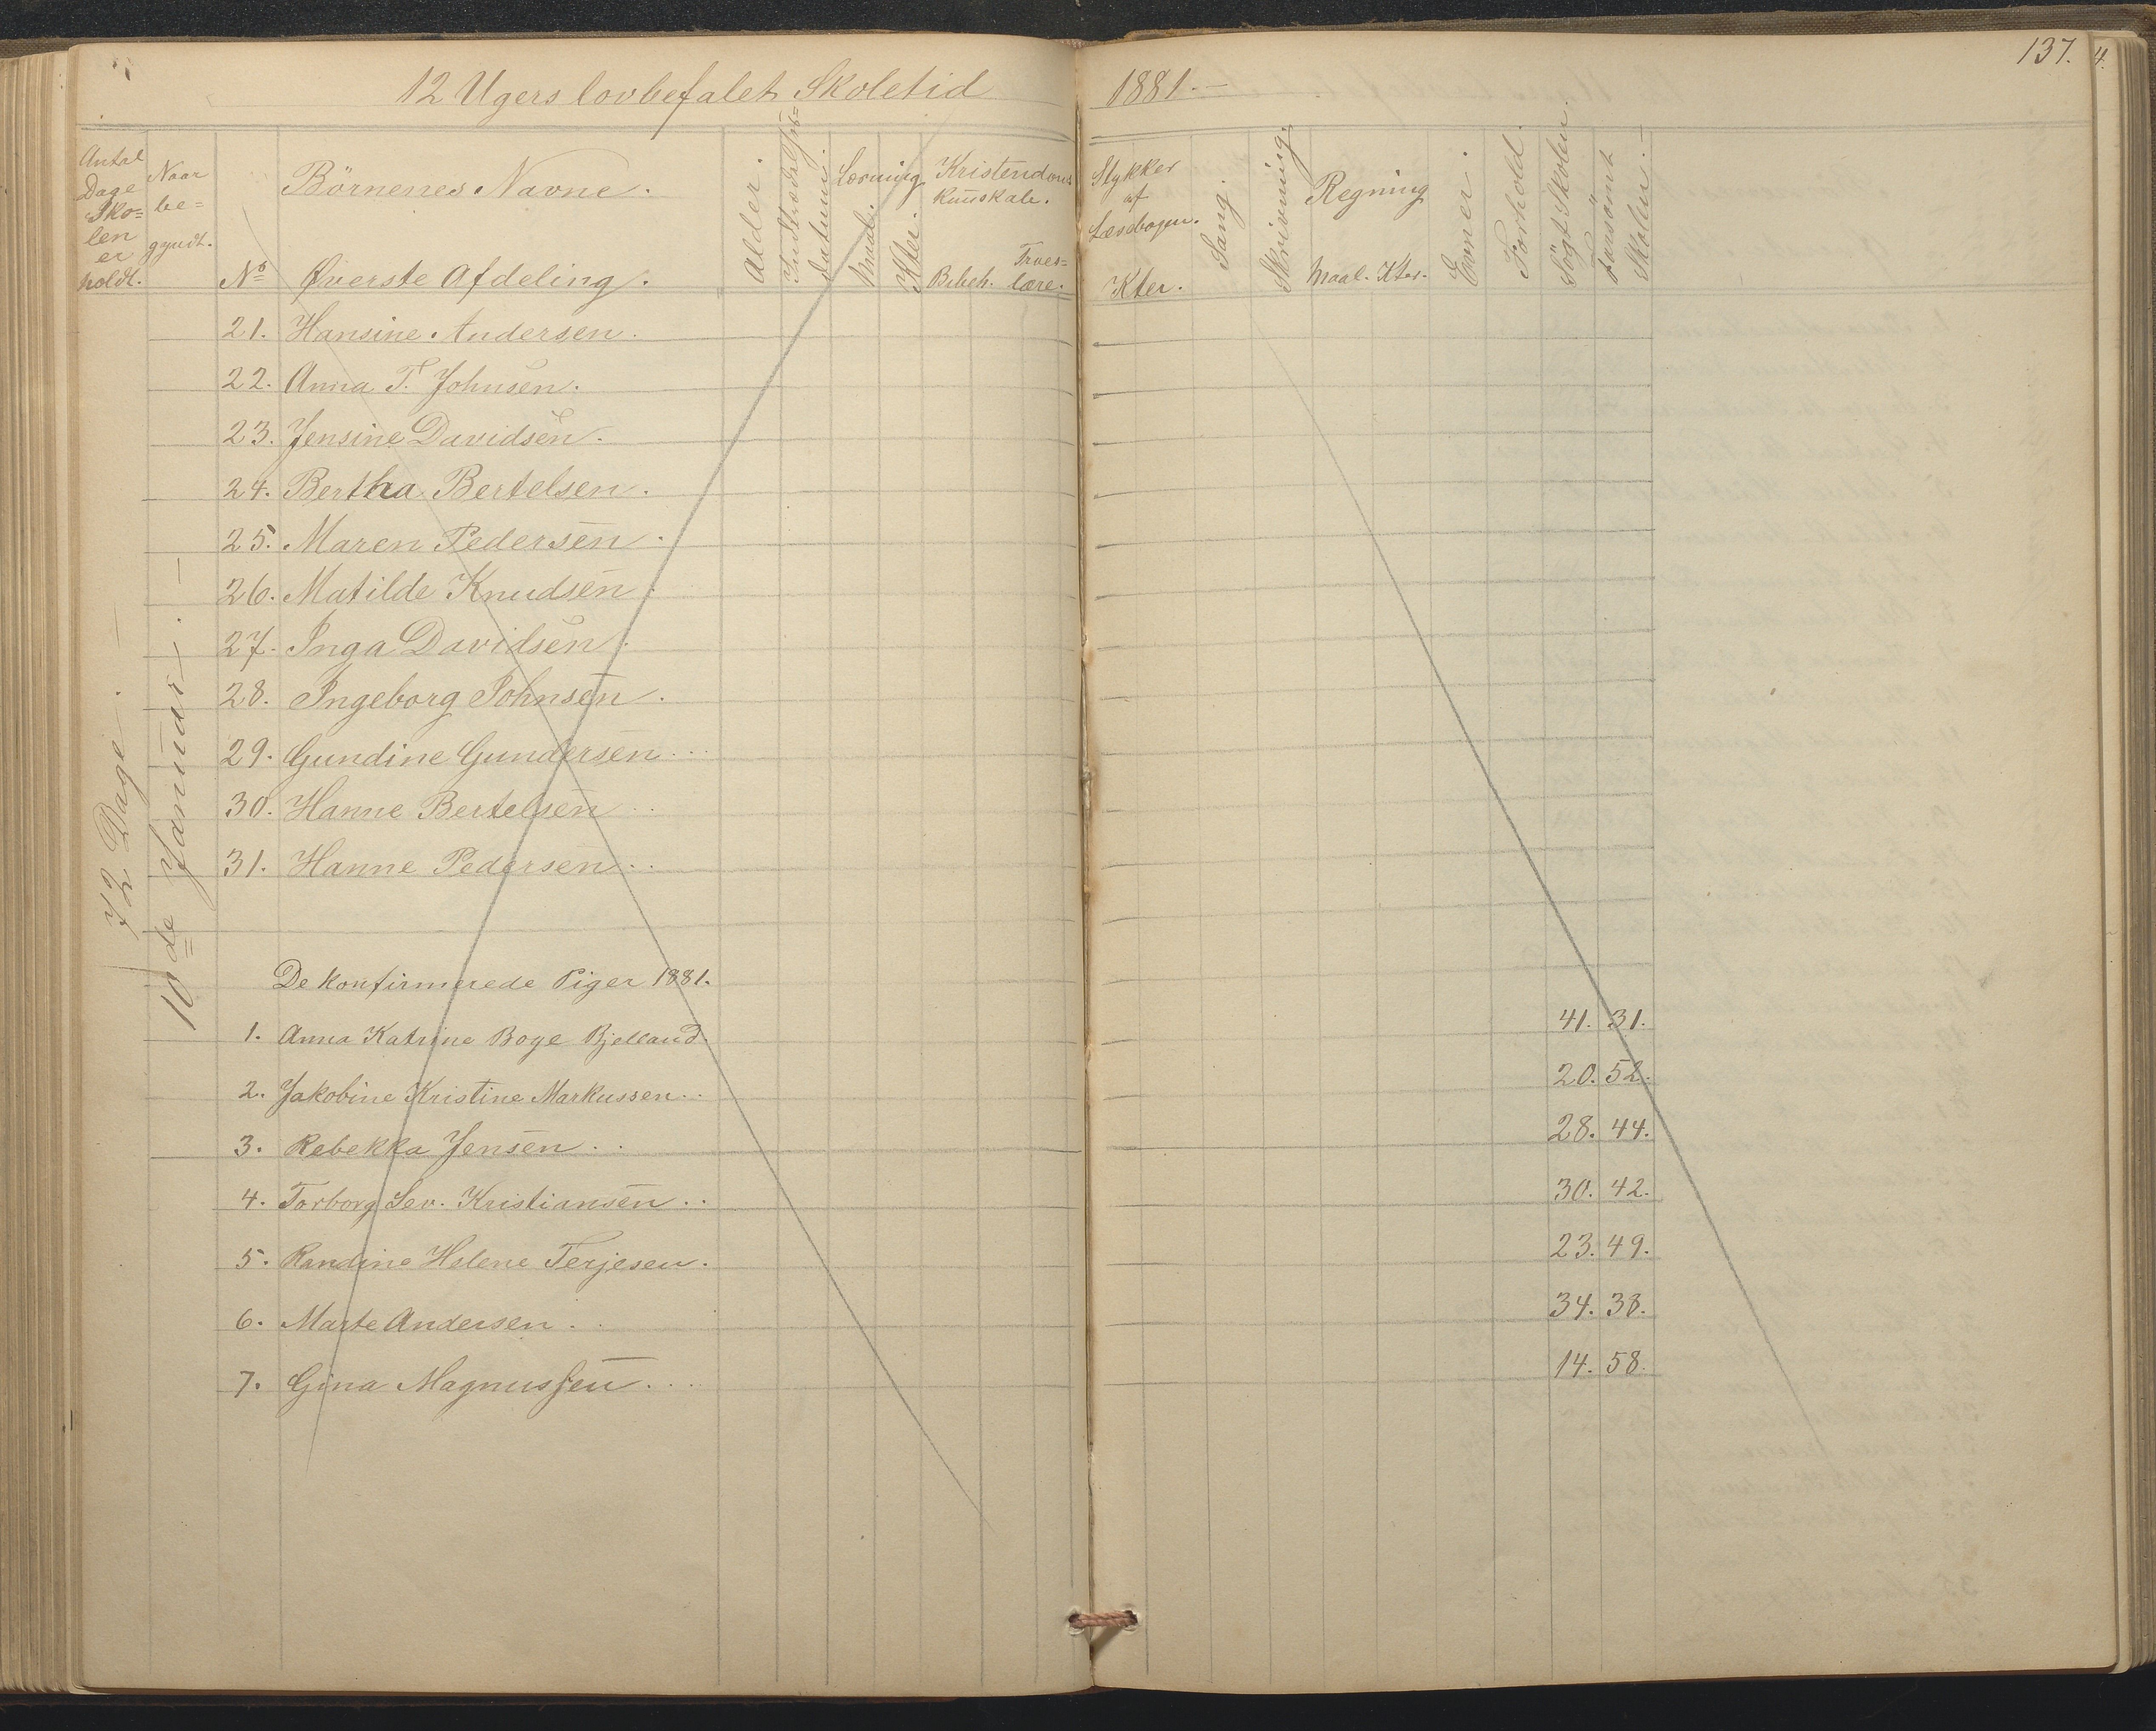 12 Ugers lovbefalet Skoletid 1881.—
137.
4.
Antal
Dage
Sko=
len
er
holdt.
Naar
be=
gyndt.
Börnenes Navne.
No Øverste Afdeling.
Alder.
datum.
Læsning
Kter.
Kristendoms
kundskab.
Bibelh.
Troes=
lære.
Stykker
af
Læsebogen.
Kter.
Sang.
Skrivning.
Regning
Maal. Kter.
Evner.
Forhold.
Sögt Skolen.
Forsömt
Skolen.—
72 Dage.—
10de Januar.—
21. Hansine Andersen.
22. Anna T. Johnsen.
23. Jensine Davidsen.
24. Bertha Bertelsen.
25. Maren Pedersen.
26. Matilde Knudsen.
27. Inga Davidsen.
28. Ingeborg Johnsen.
29. Gundine Gundersen...
30. Hanne Bertelsen..
31. Hanne Pedersen...
De konfirmerede Piger 1881.
1. Anna Katrine Boge Bjelland. 41. 31.
2. Jakobine Kristine Markussen.. 20. 52.
3. Rebekka Jensen.. 28. 44.
4. Torborg Sev. Kristiansen.. 30. 42.
5. Randine Helene Terjesen. 23. 49.
6. Marte Andersen.. 34. 38.
7. Gina Magnussen... 14. 58.